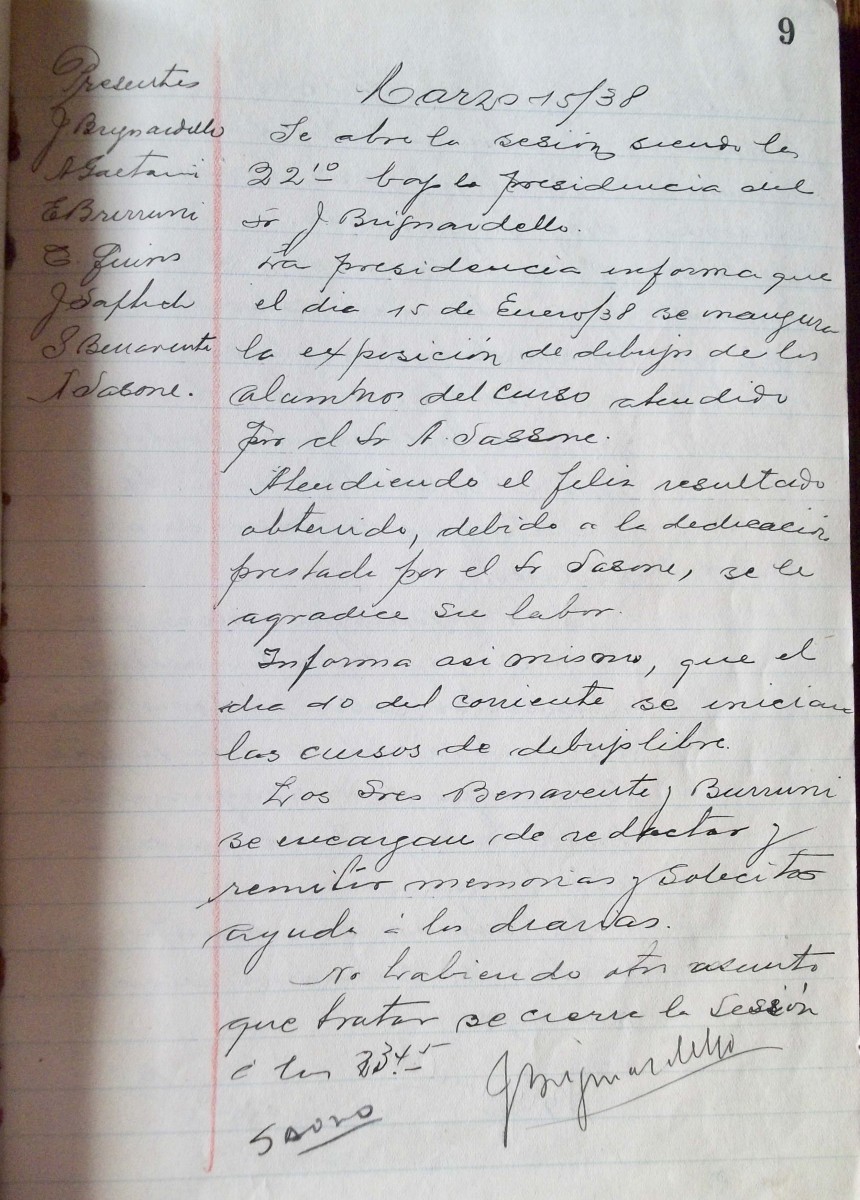 9
Presentes
J Brignardello
A Gaetani
E Burruni
J
S Benavente
A Sasone.
Marzo 15/38
Se abre la sesión siendo las
22¹⁰ bajo la presidencia del
Sr J. Brignardello.
La presidencia informa que
el dia 15 de Enero/38 se inaugura
la exposición de dibujos de los
alumnos del curso atendido
por el Sr A. Sassone.
Atendiendo el feliz resultado
obtenido, debido a la dedicación
prestada por el Sr Sasone, se le
agradice su labor.
Informa asi mismo, que el
dia 10 del corriente se inician
los cursos de dibujo libre.
Los Sres Benavente y Burruni
se encargan de redactar y
remitir memorias y solicitar
ayuda á los diarios.
No habiendo otro asunto
que tratar se cierra la sesión
á las
J Brignardello